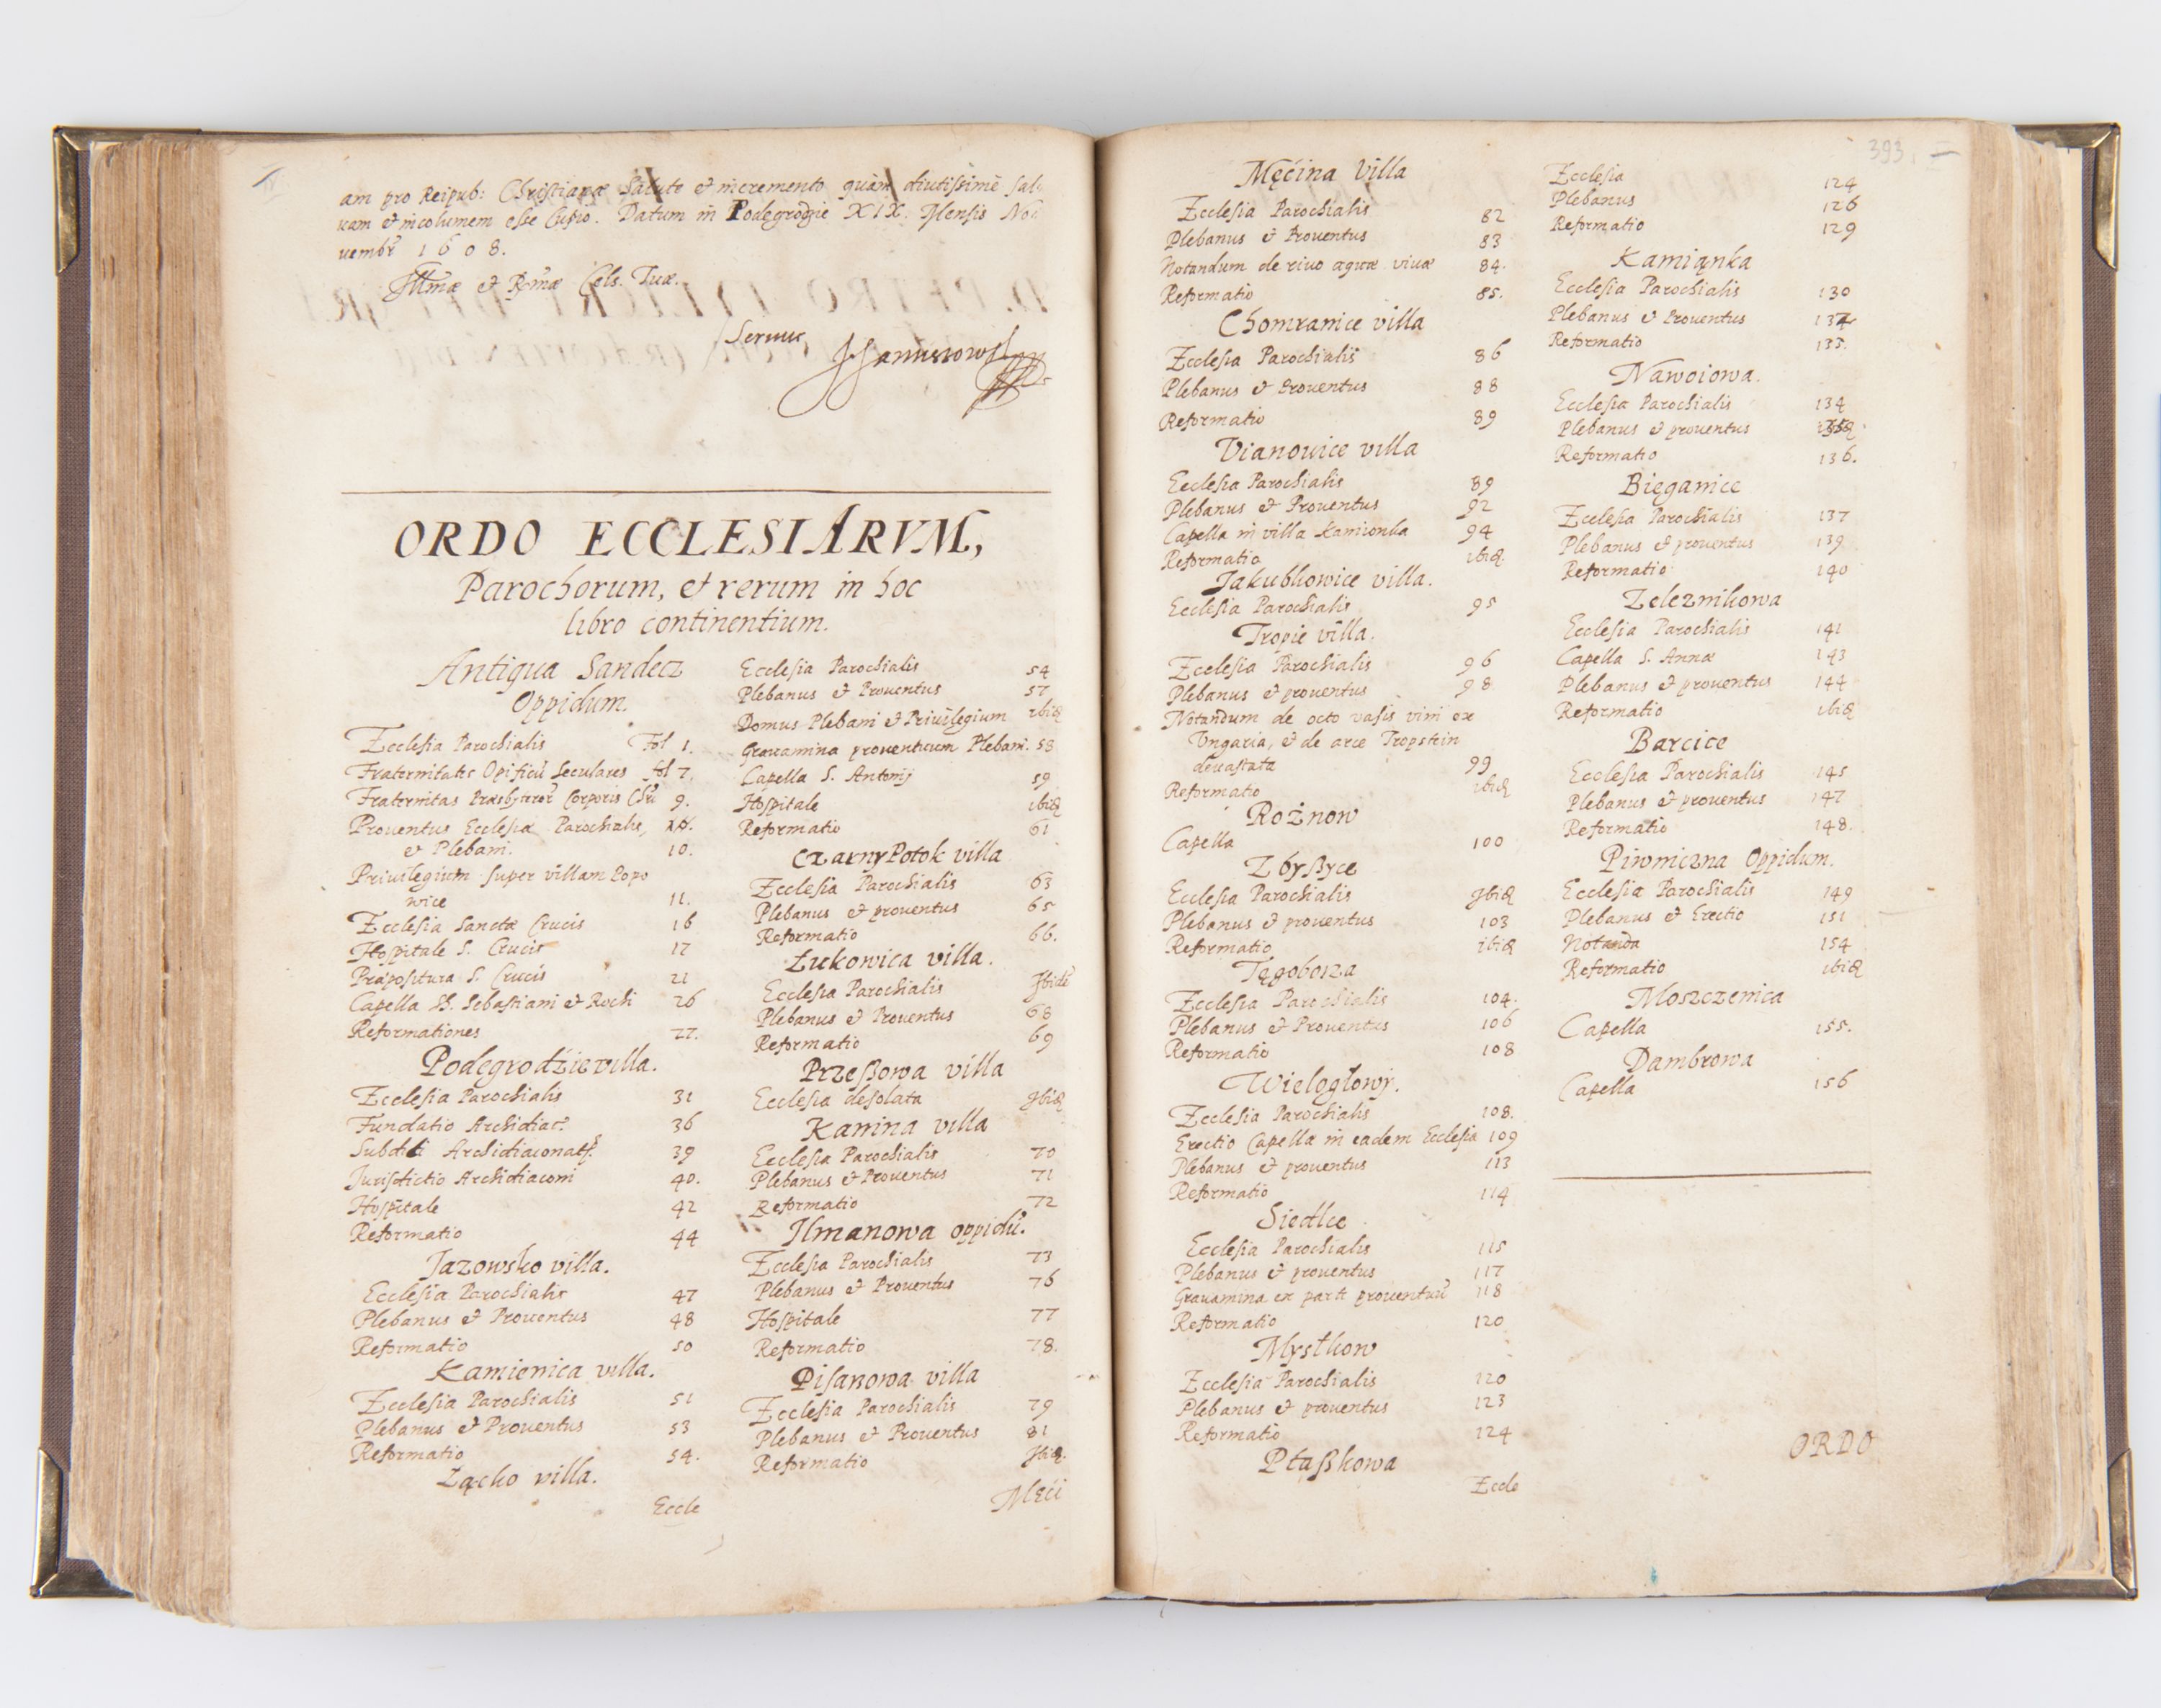 am pro Reipub: Christianæ Salute et incremento quàm diutissimè sal
uam et incolumem esse cupio. Datum in Podegrodgie XIX. Mensis No
uembr 1608.
Illmæ et Rmæ Cels. Tuæ.
Seruus
JJanusowsky
ORDO ECCLESIARVM,
Parochorum, et rerum in hoc
libro continentium.
Antiqua Sandecz
Oppidum.
Ecclesia Parochialis Fol 1.
Fraternitates Opificũ Seculares fol 7.
Fraternitas Præsbyteror Corporis Chri 9.
Prouentus Ecclesiæ Parochialis,
et Plebani. 10.
Priuilegium super villam Popo
wice 11.
Ecclesia Sanctæ Crucis 16
Hospitale S. Crucis 17
Præpositura S. Crucis 21
Capella SS. Sebastiani et Rochi 26
Reformationes 27.
Podegrodźie villa.
Ecclesia Parochialis 31
Fundatio Archidiac. 36
Subditi Archidiaconatus 39
Jurisdictio Archidiaconi 40.
Hospitale 42
Reformatio 44
Jazowsko villa.
Ecclesia Parochialis 47
Plebanus et Prouentus 48
Reformatio 50
Kamienica villa.
Ecclesia Parochialis 51
Plebanus et Prouentus 53
Reformatio 54.
Łącko villa.
Eccle
Ecclesia Parochialis 54
Plebanus et Prouentus 57
Domus Plebani et Priuilegium ibiđ
Grauamina prouentuum Plebani. 58
Capella S. Antonij 59
Hospitale ibiđ
Reformatio 61
Czarny Potok villa
Ecclesia Parochialis 63
Plebanus et prouentus 65
Reformatio 66.
Łukowica villa.
Ecclesia Parochialis Ibidẽ
Plebanus et Prouentus 68
Reformatio 69
Przeßowa villa
Ecclesia desolata Ibiđ
Kanina villa
Ecclesia Parochialis 70
Plebanus et Prouentus 71
Reformatio 72
Ilmanowa oppidũ.
Ecclesia Parochialis 73
Plebanus et Prouentus 76
Hospitale 77
Reformatio 78.
Pisanowa villa
Ecclesia Parochialis 79
Plebanus et Prouentus 81
Reformatio Ibiđ.
Męci
393.
Męcina Villa
Ecclesia Parochialis 82
Plebanus et Prouentus 83
Notandum de riuo aquæ viuæ 84.
Reformatio 85.
Chomranice villa
Ecclesia Parochialis 86
Plebanus et Prouentus 88
Reformatio 89
Vianowice villa
Ecclesia Parochialis 89
Plebanus et Prouentus 92
Capella in villa Kamionka 94
Reformatio ibiđ
Jakubkowice villa.
Ecclesia Parochialis 95
Tropie villa.
Ecclesia Parochialis 96
Plebanus et prouentus 98
Notandum de octo vasis vini ex
Vngaria, et de arce Tropstein
deuastata 99
Reformatio ibiđ
Rożnow
Capella 100
Zbyßyce
Ecclesia Parochialis Ibiđ
Plebanus et prouentus 103
Reformatio ibiđ
Tęgobosza
Ecclesia Parochialis 104.
Plebanus et Prouentus 106
Reformatio 108
Wielogłowy.
Ecclesia Parochialis 108.
Erectio Capellæ in eadem Ecclesia 109
Plebanus et prouentus 113
Reformatio 114
Siedlce
Ecclesia Parochialis 115
Plebanus et prouentus 117
Grauamina ex parte prouentuũ 118
Reformatio 120
Mystkow
Ecclesia Parochialis 120
Plebanus et prouentus 123
Reformatio 124
Ptaßkowa
Eccle
Ecclesia 124
Plebanus 126
Reformatio 129
Kamiąnka
Ecclesia Parochialis 130
Plebanus et Prouentus 132
Reformatio 133.
Nawoiowa.
Ecclesia Parochialis 134
Plebanus et prouentus
Reformatio 136.
Bieganice
Ecclesia Parochialis 137
Plebanus et prouentus 139
Reformatio 140
Zeleznikowa
Ecclesia Parochialis 141
Capella S. Annæ 143
Plebanus et prouentus 144
Reformatio ibiđ
Barcice
Ecclesia Parochialis 145
Plebanus et prouentus 147
Reformatio 148.
Piwniczna Oppidum.
Ecclesia Parochialis 149
Plebanus et Erectio 151
Notanda 154
Reformatio ibiđ
Moszczenica
Capella 155.
Dambrowa
Capella 156
ORDO